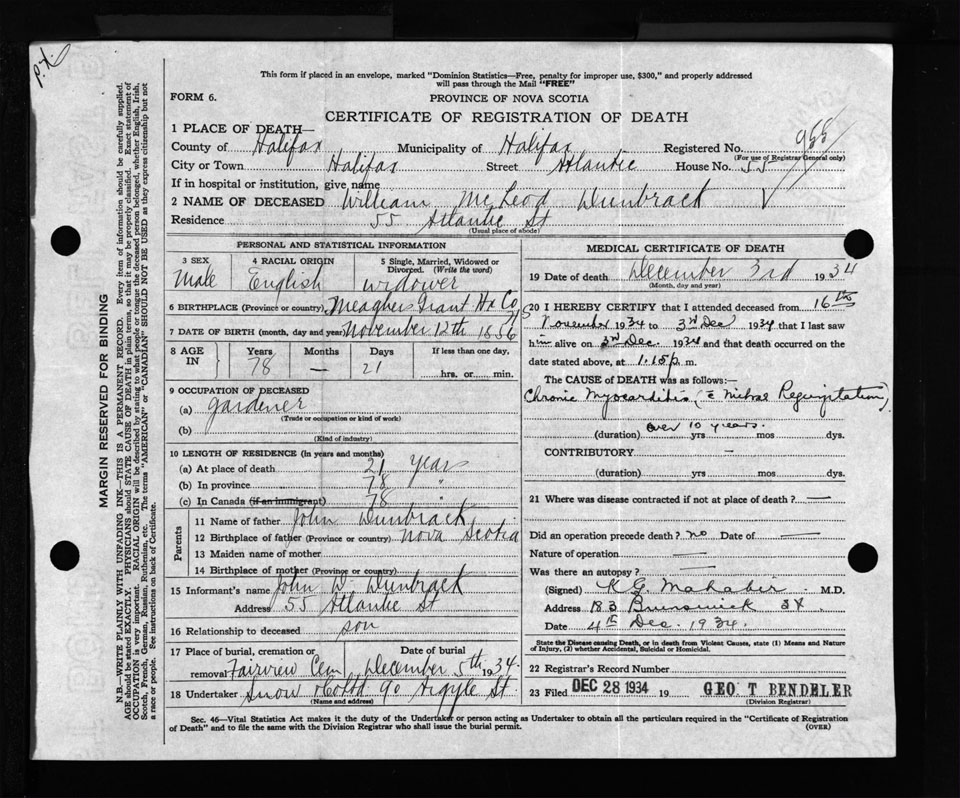 P.X.
This form if placed in an envelope, marked "Dominion Statistics—Free, penalty for improper use, $300," and properly addressed
will pass through the Mail "FREE"
FORM 6.
PROVINCE OF NOVA SCOTIA
CERTIFICATE OF REGISTRATION OF DEATH
1 PLACE OF DEATH—
County of Halifax Municipality of Halifax Registered No.
(For use of Registrar General only)
City or Town Halifax Street Atlantic House No. 55
If in hospital or institution, give name
2 NAME OF DECEASED William McLeod Dunbrack
Residence 55 Atlantic St
(Usual place of abode)
PERSONAL AND STATISTICAL INFORMATION
3 SEX Male
4 RACIAL ORIGIN English
5 Single, Married, Widowed or Divorced. (Write the word) widower
6 BIRTHPLACE (Province or country) Meaghers Grant Hx Co NS
7 DATE OF BIRTH (month, day and year) November 12th 1856
8 AGE IN Years 78 Months — Days 21 If less than one day, hrs. or min.
9 OCCUPATION OF DECEASED
(a) gardener
(Trade or occupation or kind of work)
(b)
(Kind of industry)
10 LENGTH OF RESIDENCE (In years and months)
(a) At place of death 21 years
(b) In province 78 "
(c) In Canada (if an immigrant) 78 "
Parents
11 Name of father John Dunbrack
12 Birthplace of father (Province or country) Nova Scotia
13 Maiden name of mother
14 Birthplace of mother (Province or country)
15 Informant's name John W. Dunbrack
Address 55 Atlantic St
16 Relationship to deceased son
17 Place of burial, cremation or removal Fairview Cem Date of burial December 5th 1934
18 Undertaker Snow & Co Ltd 90 Argyle St.
(Name and address)
MEDICAL CERTIFICATE OF DEATH
19 Date of death December 3rd 1934
(Month, day and year)
20 I HEREBY CERTIFY that I attended deceased from 16th
November 1934 to 3rd Dec 1934 that I last saw
him alive on 3rd Dec. 1934 and that death occurred on the
date stated above, at 1.15 p. m.
The CAUSE of DEATH was as follows:—
Chronic Myocarditis, (c Mitral Regurgitation)
over 10 years.
(duration) yrs mos dys.
CONTRIBUTORY —
(duration) yrs mos dys.
21 Where was disease contracted if not at place of death? —
Did an operation precede death? no Date of —
Nature of operation —
Was there an autopsy? —
(Signed) K. G. Mahabir M.D.
Address 183 Brunswick St
Date 4th Dec. 1934.
State the Disease causing Death, or in death from Violent Causes, state (1) Means and Nature
of Injury, (2) whether Accidental, Suicidal or Homicidal.
22 Registrar's Record Number
23 Filed DEC 28 1934 19 GEO T BENDELER
(Division Registrar)
Sec. 46—Vital Statistics Act makes it the duty of the Undertaker or person acting as Undertaker to obtain all the particulars required in the "Certificate of Registration
of Death" and to file the same with the Division Registrar who shall issue the burial permit.
(OVER)
MARGIN RESERVED FOR BINDING
N.B.—WRITE PLAINLY WITH UNFADING INK—THIS IS A PERMANENT RECORD. Every item of information should be carefully supplied.
AGE should be stated EXACTLY. PHYSICIANS should STATE CAUSE OF DEATH in plain terms, so that it may be properly classified. Exact statement of
OCCUPATION is very important. RACIAL ORIGIN will be described by stating to what people or tongue the deceased person belonged, whether English, Irish,
Scotch, French, German, Russian, Ruthenian, etc. The terms "AMERICAN" or "CANADIAN" SHOULD NOT BE USED as they express citizenship but not
a race or people. See instructions on back of Certificate.